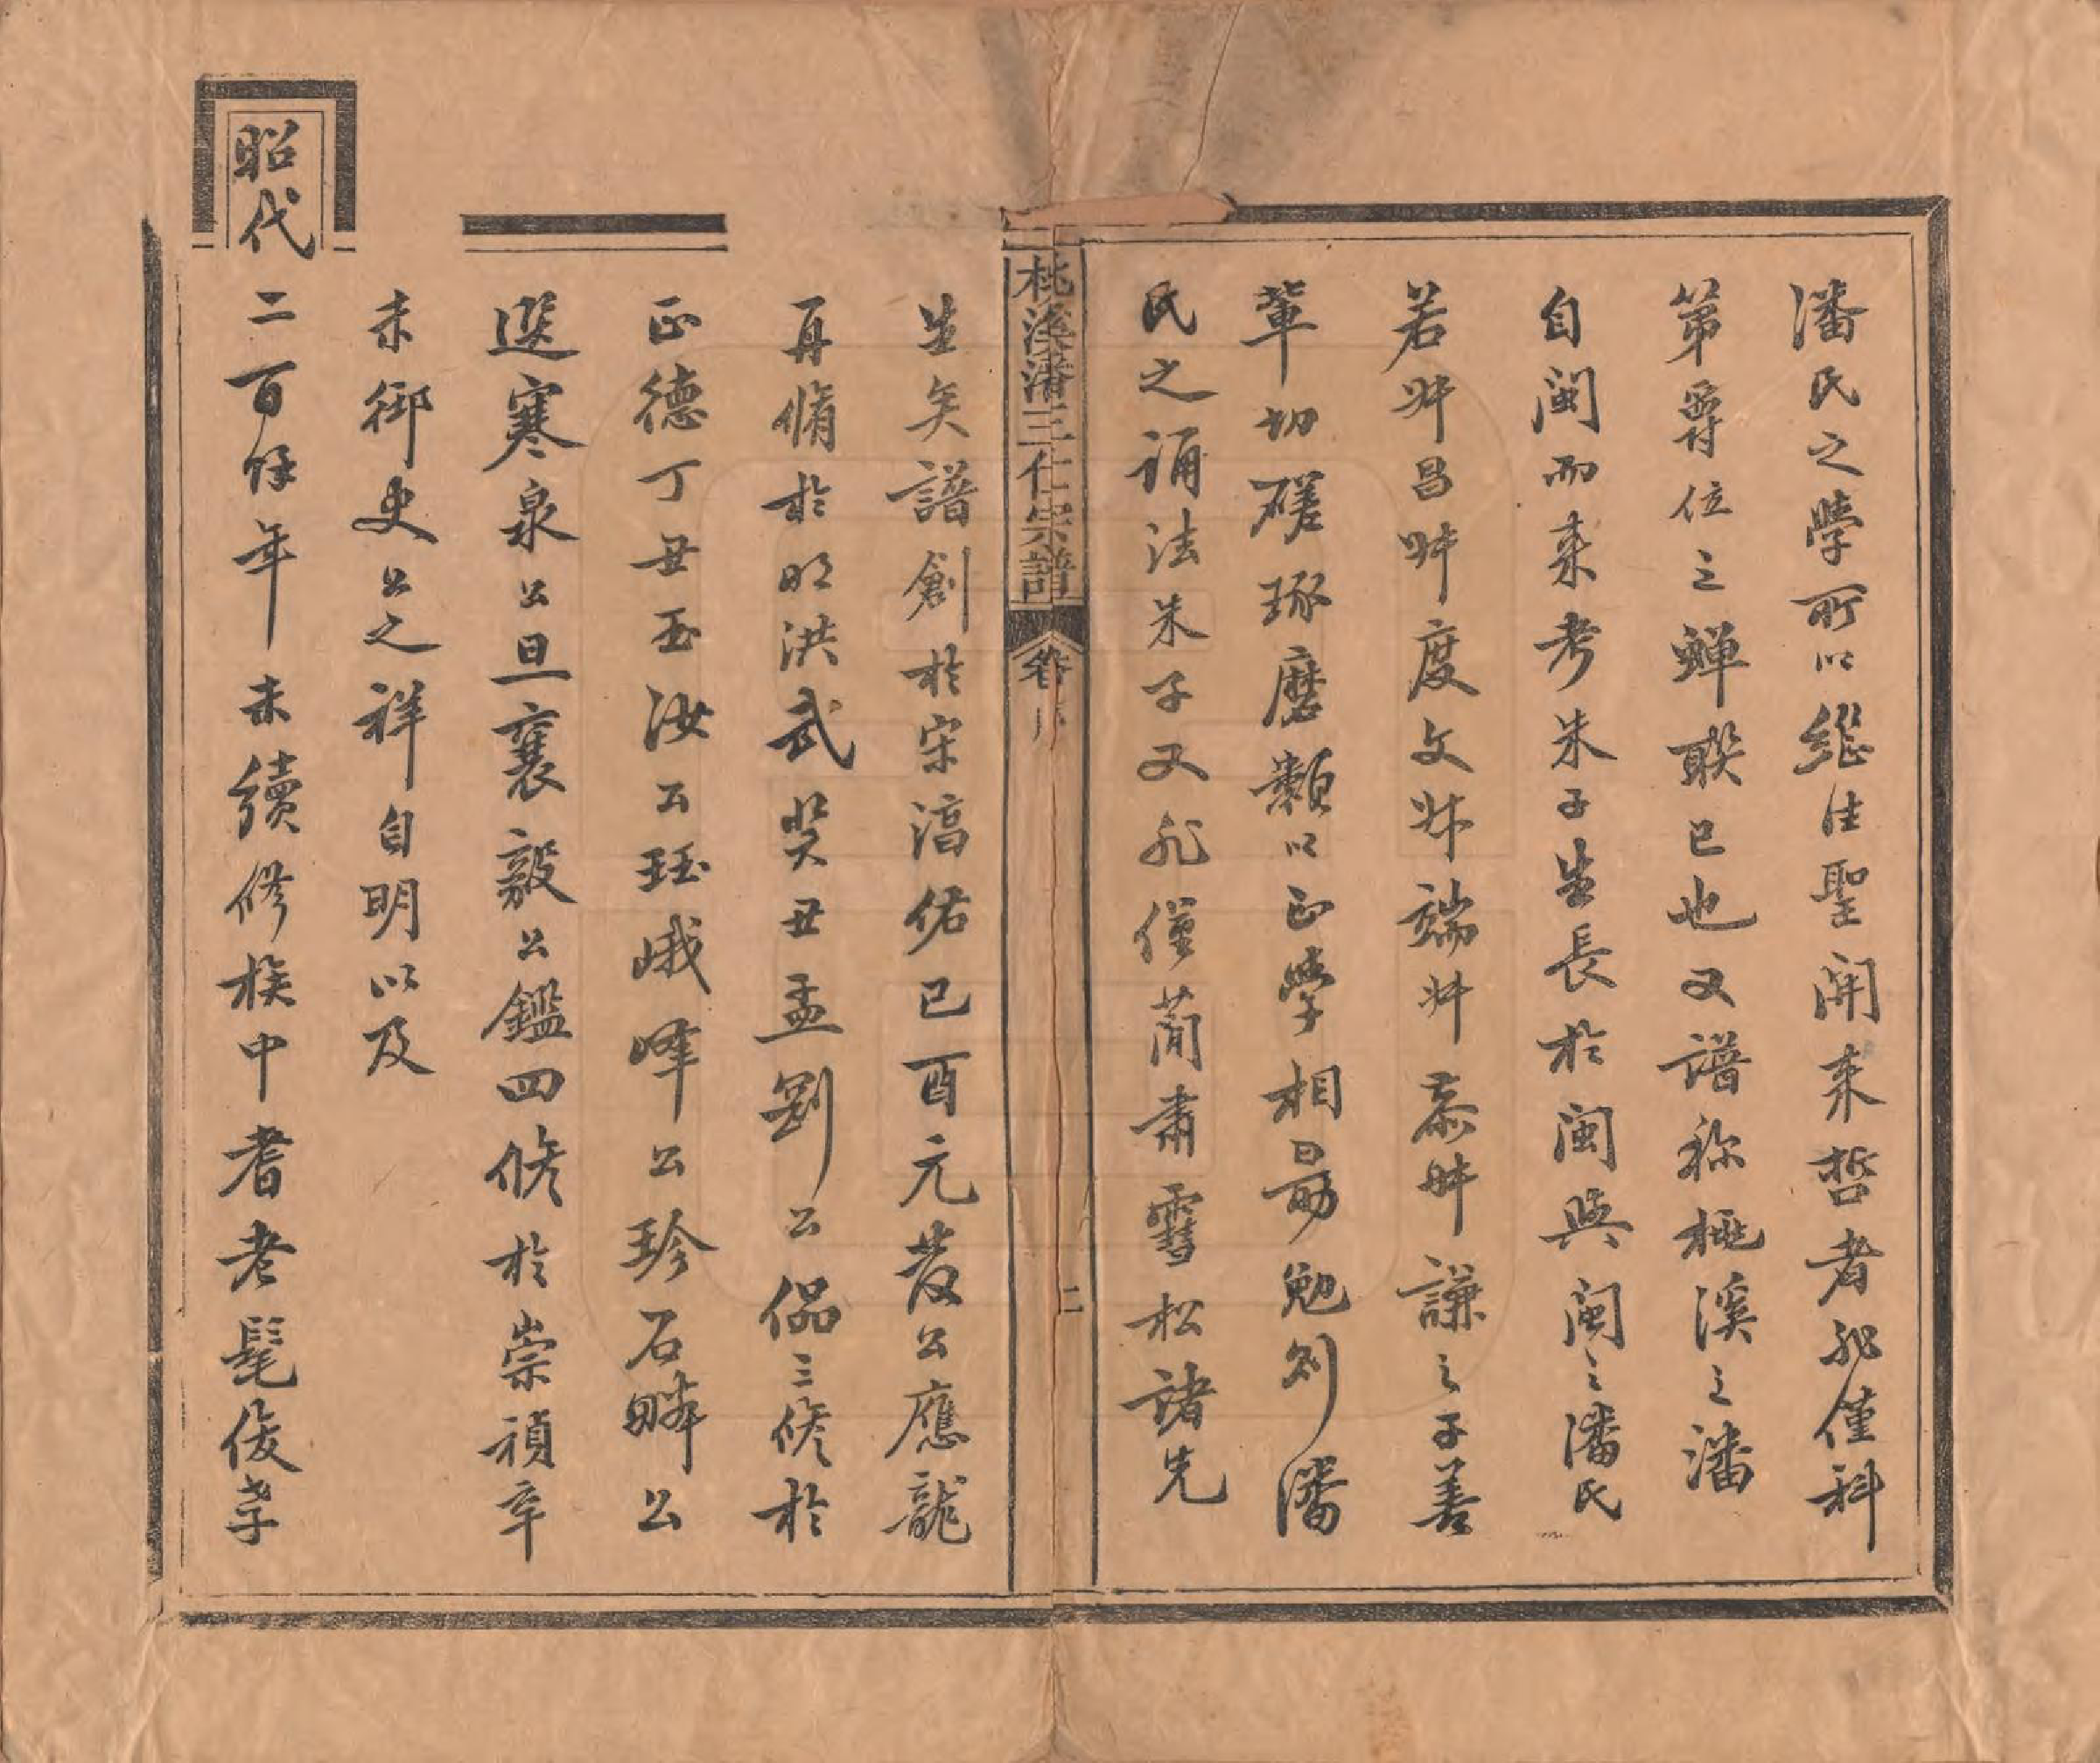 潘氏之學所以繼往聖開来哲者非僅科
第爵位之蟬聯已也又譜称桃溪之潘
自閩而来考朱子生長於閩與閩之潘氏
若叶昌叶度文叔端叔恭叔謙之子善
輩切磋琢磨類以正學相勗勉則潘
氏之誦法朱子又非僅蕳肅雪松諸先
桃溪潘三仁宗譜 卷首
二
生矣譜創於宋淳佑己酉元發公應龍
再脩於明洪武癸丑孟劉公偘三修於
正德丁丑玉汝公珏峨峰公珍石疄公
選寒泉公旦襄毅公鑑四修於崇禎辛
未御史公之祥自明以及
昭代二百餘年未續修族中耆老髦俊孝